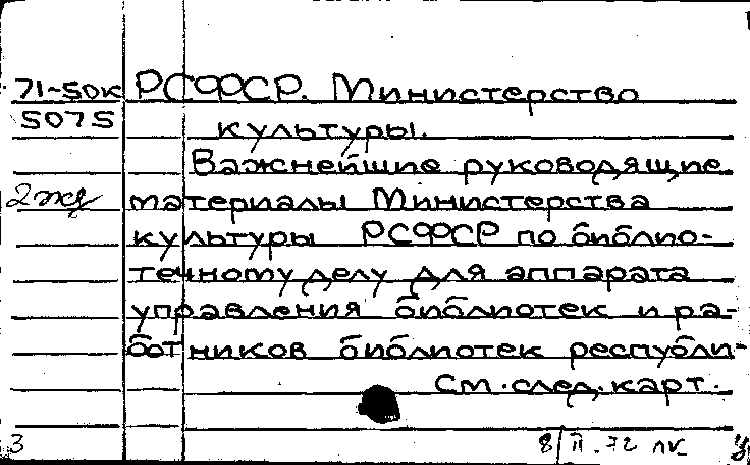 71-50к РСФСР. Министерство
5075 культуры.
Важнейшие руководящие
2 экз материалы Министерства
культуры РСФСР по библио-
течному делу для аппарата
управления библиотек и ра-
ботников библиотек республи-
См. след. карт.
3 8/II.72 лк